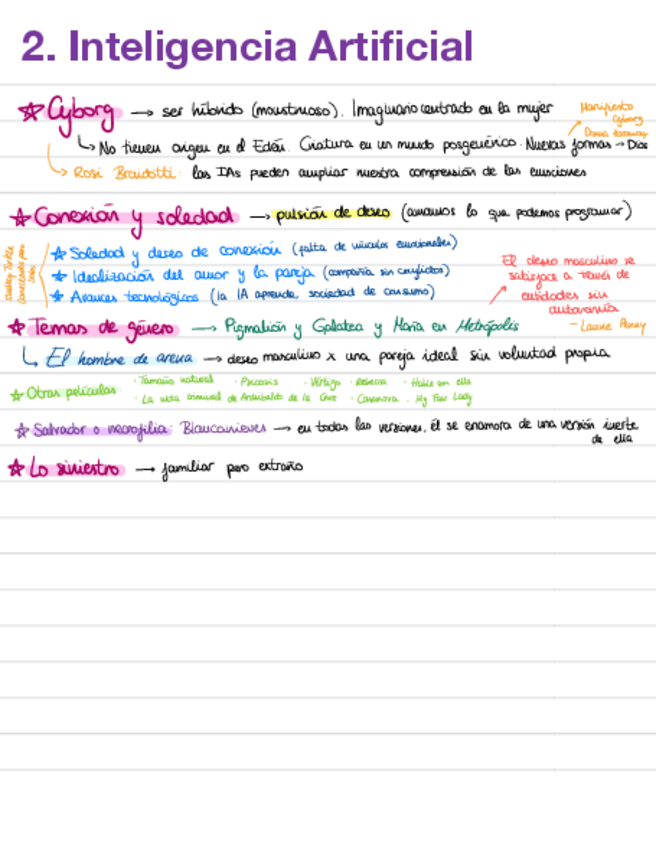 2. Inteligencia Artificial
☆ Cyborg → ser híbrido (monstruoso). Imaginario centrado en la mujer
Manifiesto
Cyborg
Donna Haraway
↳ No tienen origen en el Edén. Criatura en un mundo posgenérico. Nuevas formas → Dios
↳ Rosi Braidotti: las IAs pueden ampliar nuestra comprensión de las emociones
☆ Conexión y soledad → pulsión de deseo (amamos lo que podemos programar)
Sherry Turkle
conectados pero
solos
☆ Soledad y deseo de conexión (falta de vínculos emocionales)
☆ Idealización del amor y la pareja (compañía sin conflictos)
☆ Avances tecnológicos (la IA aprende, sociedad de consumo)
El deseo masculino se
satisface a través de
entidades sin
autonomía
- Laurie Penny
☆ Temas de género → Pigmalión y Galatea y María en Metrópolis
↳ El hombre de arena → deseo masculino x una pareja ideal sin voluntad propia
☆ Otras películas
· Tamaño natural · Psicosis · Vértigo · Rebecca · Hable con ella
· La vida criminal de Archibaldo de la Cruz · Casanova · My Fair Lady
☆ Salvador o necrofilia: Blancanieves → en todas las versiones, él se enamora de una versión inerte
de ella
☆ Lo siniestro → familiar pero extraño